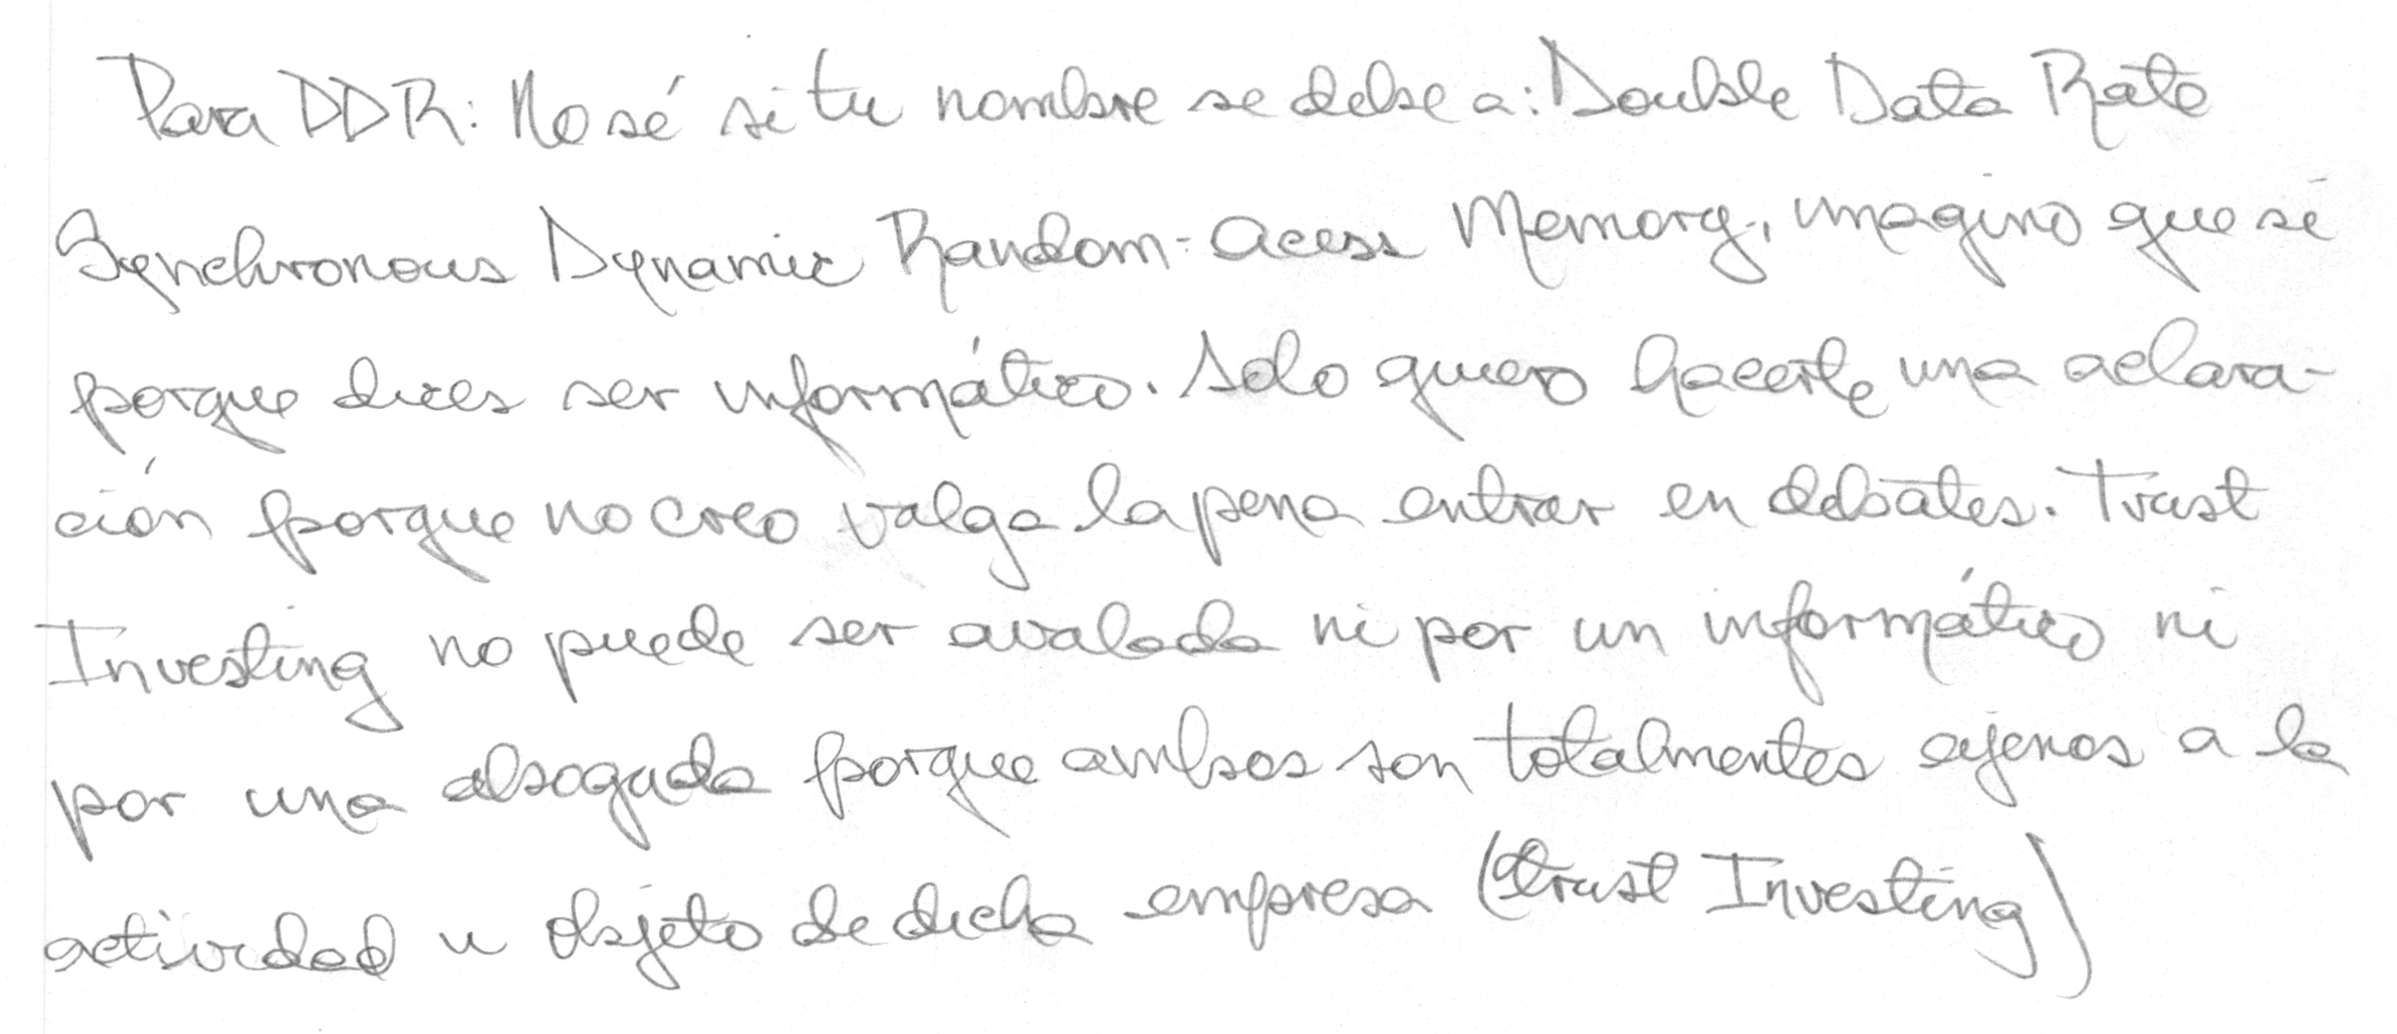 Para DDR: No sé si tu nombre se debe a: Double Data Rate
Synchronous Dynamic Random-Acess Memory, imagino que sí
porque dices ser informático. Solo quiero hacerte una aclara-
ción porque no creo valga la pena entrar en debates. Trust
Investing no puede ser avalada ni por un informático ni
por una abogada porque ambos son totalmentes ajenos a la
actividad u objeto de dicha empresa (trust Investing)